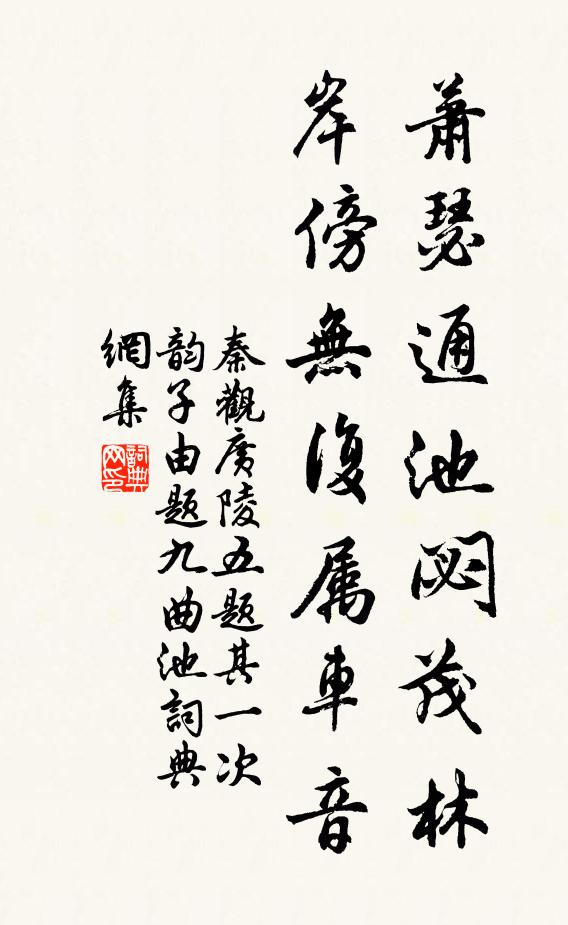 蕭瑟通池閟茂林
岸傍無復属車音
秦觀廣陵五题其一次
韵子由题九曲池詞典
網集
詞典
网印